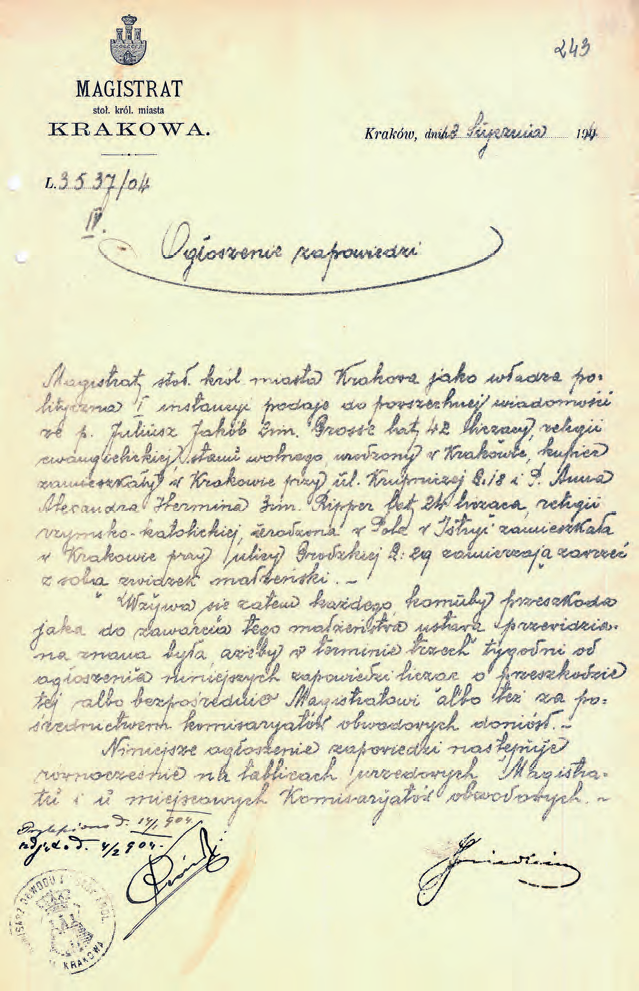 243
MAGISTRAT
stoł. król. miasta
KRAKOWA.
Kraków, dnia 13 Stycznia 1904
L. 3537/04
IV.
Ogłoszenie zapowiedzi
Magistrat stoł. król. miasta Krakowa jako władza po-
lityczna I instancyi podaje do powszechnej wiadomości
że p. Juliusz Jakób 2im. Grosse lat 42 liczący, religii
ewangielickiej, stanu wolnego urodzony w Krakowie, kupiec
zamieszkały w Krakowie przy ul. Krupniczej L. 18 i P. Anna
Alexandra Hermina 3im. Ripper lat 24 licząca, religii
rzymsko-katolickiej, urodzona w Pola w Istryi zamieszkała
w Krakowie przy ulicy Grodzkiej L: 29 zamierzają zawrzeć
z sobą związek małżeński. —
Wzywa się zatem każdego, komuby przeszkoda
jaka do zawarcia tego małżeństwa ustawą przewidzia-
na znana była ażeby w terminie trzech tygodni od
ogłoszenia niniejszych zapowiedzi licząc o przeszkodzie
tej albo bezpośrednio Magistratowi albo też za po-
średnictwem komisaryatów obwodowych doniósł. —
Niniejsze ogłoszenie zapowiedzi następuje
równocześnie na tablicach urzędowych Magistra-
tu i u miejscowych Komisaryatów obwodowych. —
Przylepiono d. 14/1 904.
zdjęto d. 4/2 904.
Friedlein
KOMISARZ OBWODU I
KRAKOWA